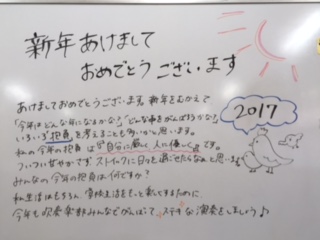 新年あけまして
おめでとうございます
あけましておめでとうございます。新年をむかえて
「今年はどんな年になるかな?」「どんな事をがんばろうかな?」
いろいろ抱負を考えることも多いかと思います。
私の今年の抱負は "自分に厳しく人に優しく"です。
ついつい甘やかさず ストイックに日々を過ごせたらなぁと思います
みんなの今年の抱負は何ですか?
私生活はもちろん、学校生活をもっと楽しくするために
今年も吹奏楽部みんなでがんばって、ステキな演奏をしましょう♪
2017